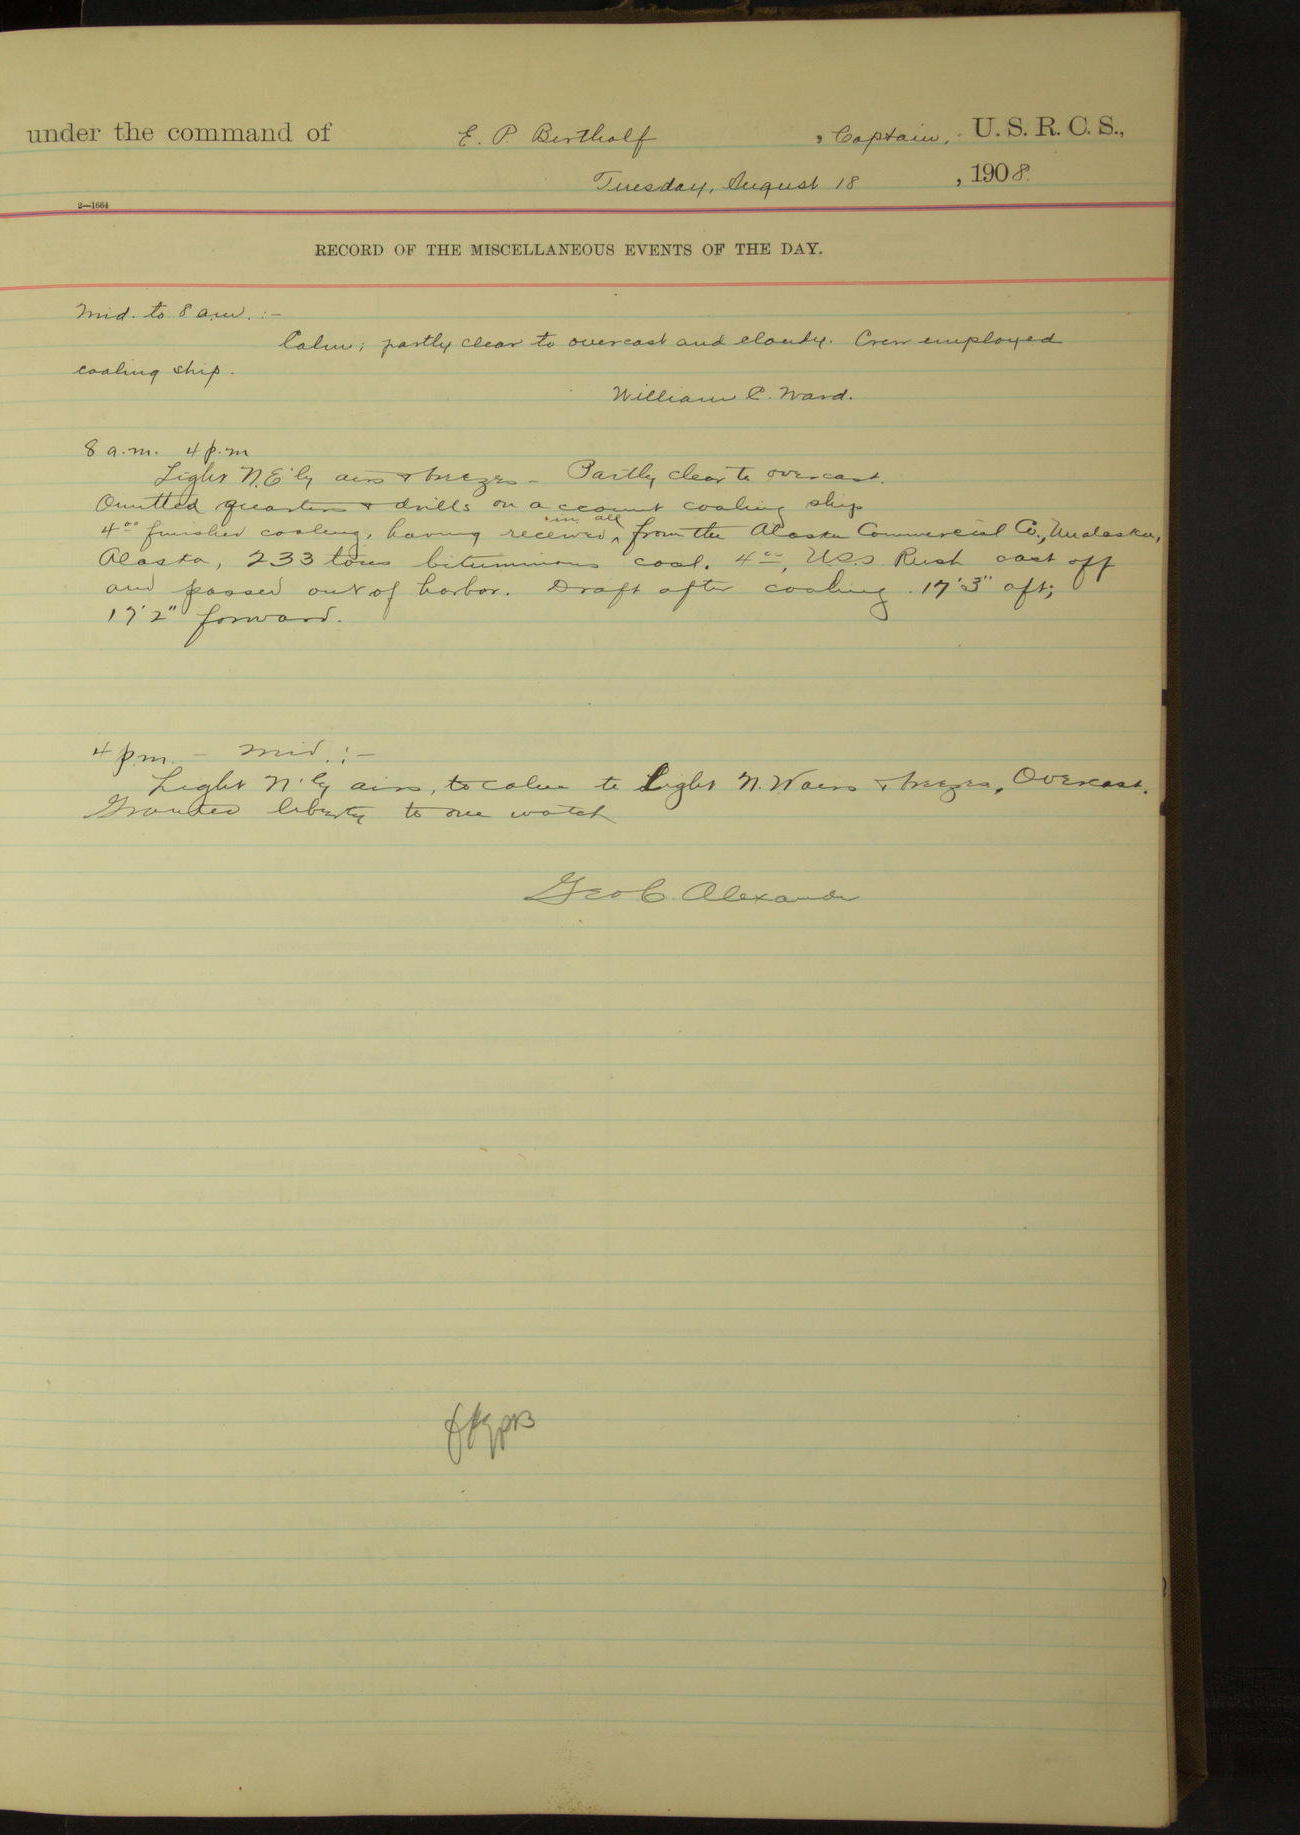 under the command of E. P. Bertholf, Captain, U. S. R. C. S.,
Tuesday, August 18, 1908.
2—1664
RECORD OF THE MISCELLANEOUS EVENTS OF THE DAY.
Mid. to 8 a.m. :-
Calm; partly clear to overcast and cloudy. Crew employed
coaling ship.
William C. Ward.
8 a.m. 4 p.m
Light N.E'ly airs & breezes - Partly clear to overcast.
Omitted quarters & drills on account coaling ship
4⁰⁰ finished coaling, having received ^in all from the Alaska Commercial Co., Unalaska,
Alaska, 233 tons bituminous coal. 4⁰⁰, U.S.S Rush cast off
and passed out of harbor. Draft after coaling 17'3" aft;
17'2" forward.
4 p.m. - Mid. :-
Light N'ly airs, to calm to Light N.W airs & breezes, Overcast.
Granted liberty to one watch
Geo C. Alexander